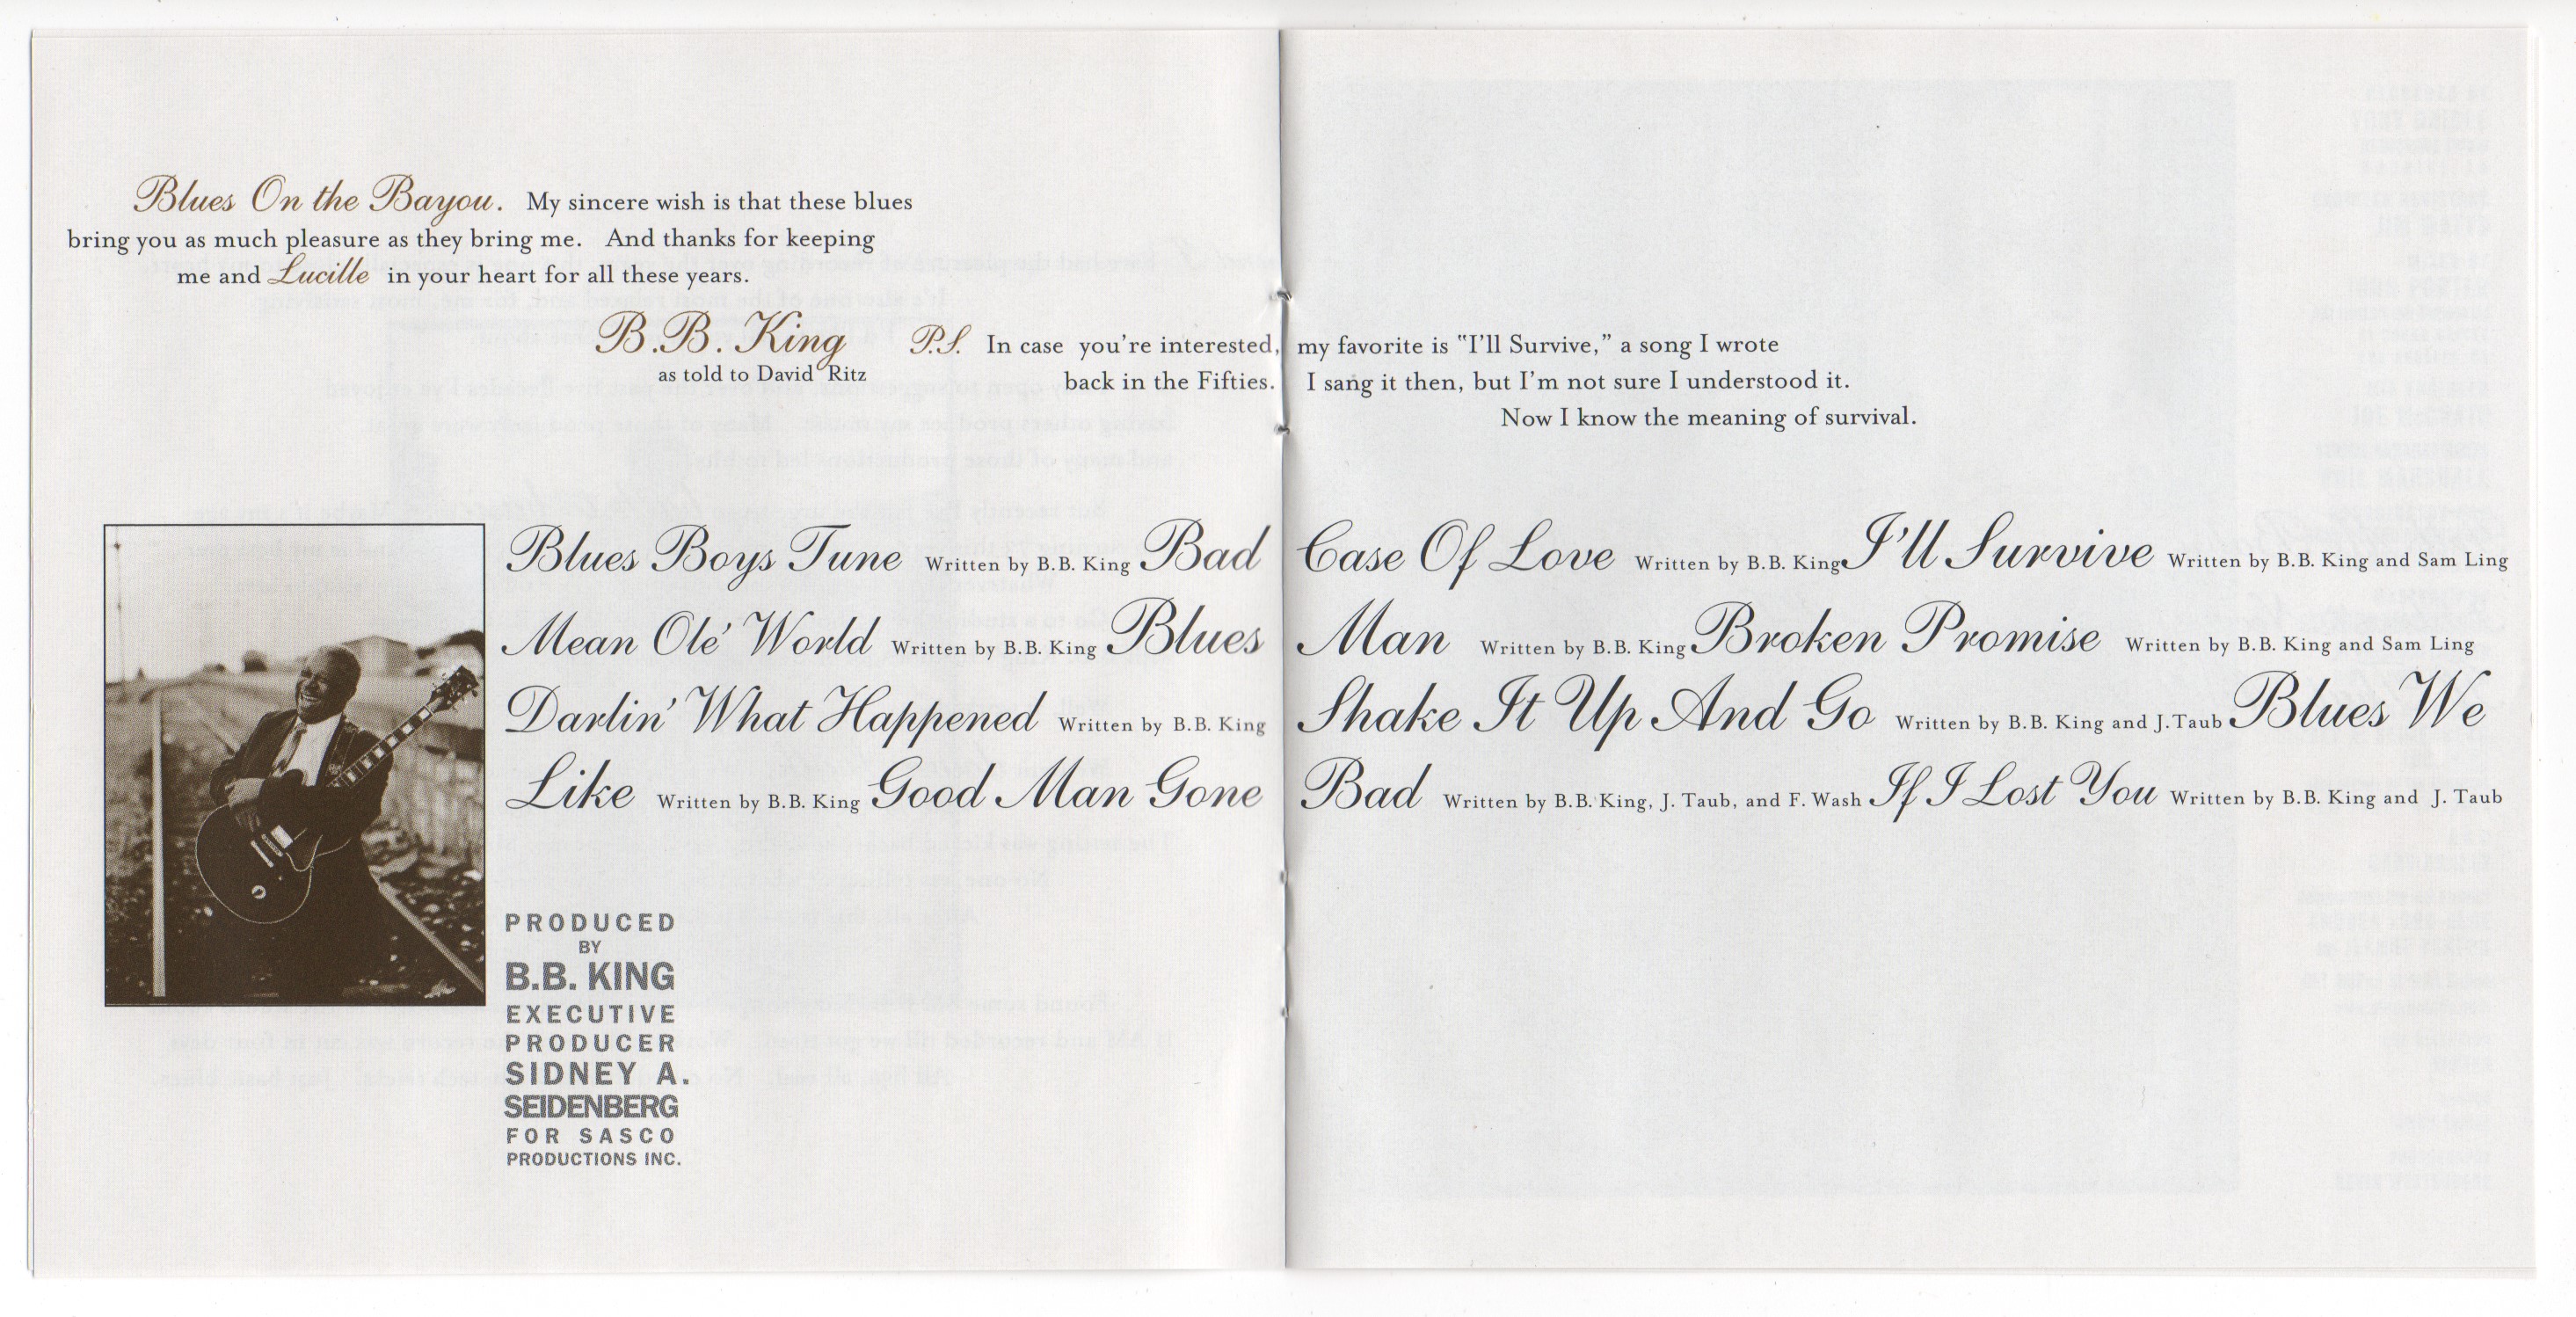 Blues On the Bayou. My sincere wish is that these blues
bring you as much pleasure as they bring me. And thanks for keeping
me and Lucille in your heart for all these years.
B.B. King
as told to David Ritz
P.S. In case you're interested, my favorite is "I'll Survive," a song I wrote
back in the Fifties. I sang it then, but I'm not sure I understood it.
Now I know the meaning of survival.
Blues Boys Tune Written by B.B. King Bad Case Of Love Written by B.B. King I'll Survive Written by B.B. King and Sam Ling
Mean Ole' World Written by B.B. King Blues Man Written by B.B. King Broken Promise Written by B.B. King and Sam Ling
Darlin' What Happened Written by B.B. King Shake It Up And Go Written by B.B. King and J. Taub Blues We
Like Written by B.B. King Good Man Gone Bad Written by B.B. King, J. Taub, and F. Wash If I Lost You Written by B.B. King and J. Taub
PRODUCED
BY
B.B. KING
EXECUTIVE
PRODUCER
SIDNEY A.
SEIDENBERG
FOR SASCO
PRODUCTIONS INC.